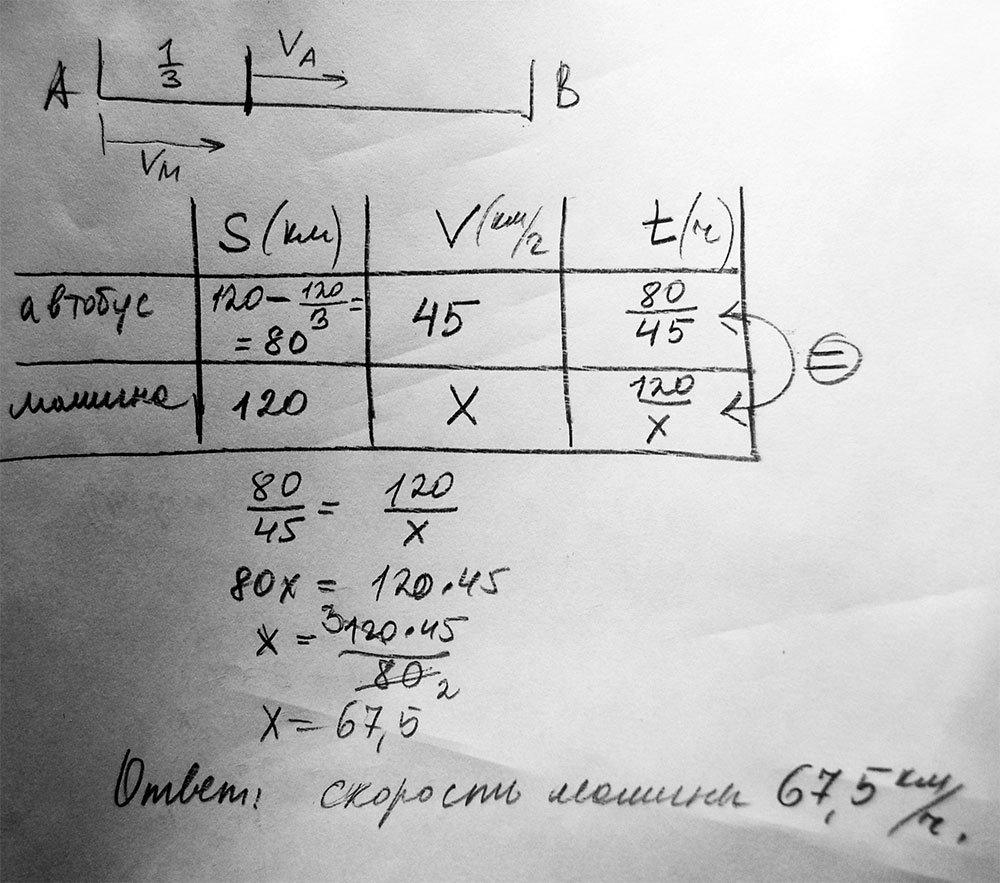 A 1/3 VA B
VM
S (км) V (км/ч) t (ч)
автобус 120 - 120/3 = = 80 45 80/45
машина 120 X 120/X =
80/45 = 120/X
80x = 120·45
X = 3 120·45 / 80 2
X = 67,5
Ответ: скорость машины 67,5 км/ч.